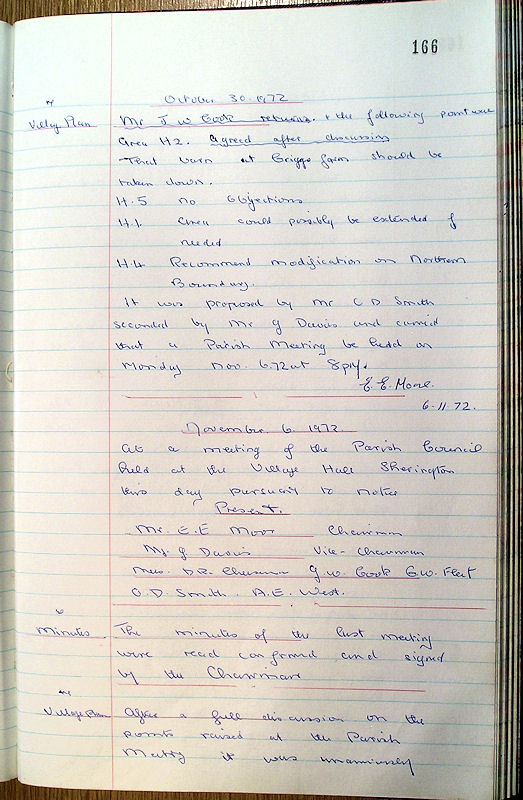 166
October 30. 1972
Village Plan Mr J W Cook returns. & the following point were
Area H2. agreed after discussion
That barn at Griggs farm should be
taken down.
H.5 no objections
H.1. Area could possibly be extended if
needed
H.4 Recommend modification on Northern
Boundary.
It was proposed by Mr C D Smith
seconded by Mr G Davis and carried
that a Parish Meeting be held on
Monday Nov. 6.72 at 8pm.
E. E. More.
6.11.72.
November 6. 1972
At a meeting of the Parish Council
held at the Village Hall Sherington
this day pursuant to notice
Present.
Mr. E. E Moor Chairman
Mr. G Davis Vice-Chairman
Mrs. G. W. Cook G. W. Fleet
C. D. Smith. A. E. West.
Minutes The minutes of the last meeting
were read confirmed and signed
by the Chairman
Village Plan After a full discussion on the
points raised at the Parish
Meeting it was unanimously